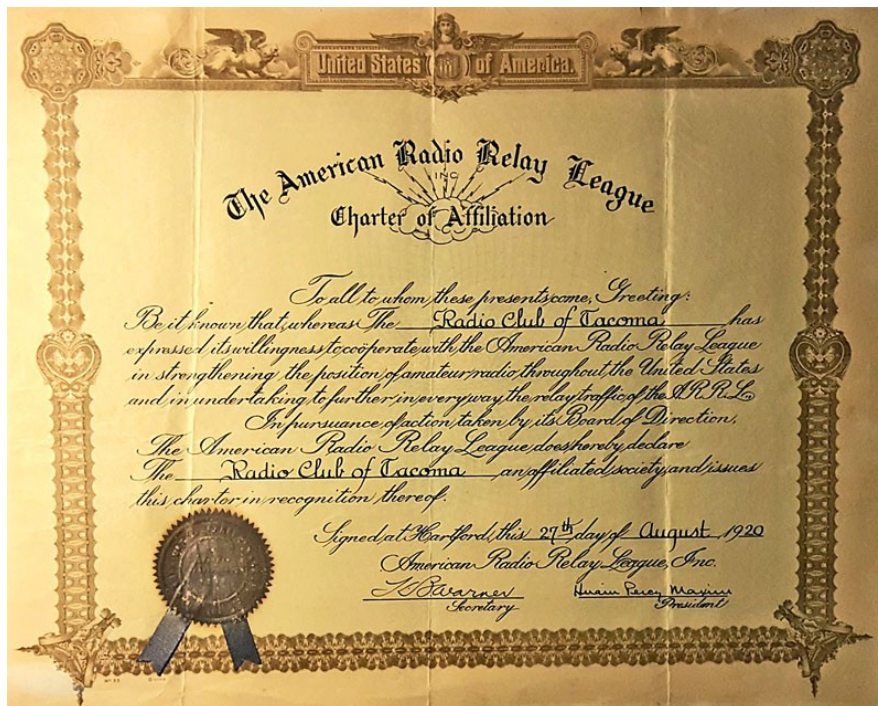 United States of America.
The American Radio Relay League
INC
Charter of Affiliation
To all to whom these presents come, Greeting:
Be it known that, whereas The Radio Club of Tacoma has
expressed its willingness to coöperate with the American Radio Relay League
in strengthening the position of amateur radio throughout the United States
and in undertaking to further in every way the relay traffic of the A.R.R.L.,
In pursuance of action taken by its Board of Direction,
The American Radio Relay League, does hereby declare
The Radio Club of Tacoma an affiliated society, and issues
this charter in recognition thereof.
Signed at Hartford, this 27th day of August 1920
American Radio Relay League, Inc.
K B Warner Hiram Percy Maxim
Secretary President